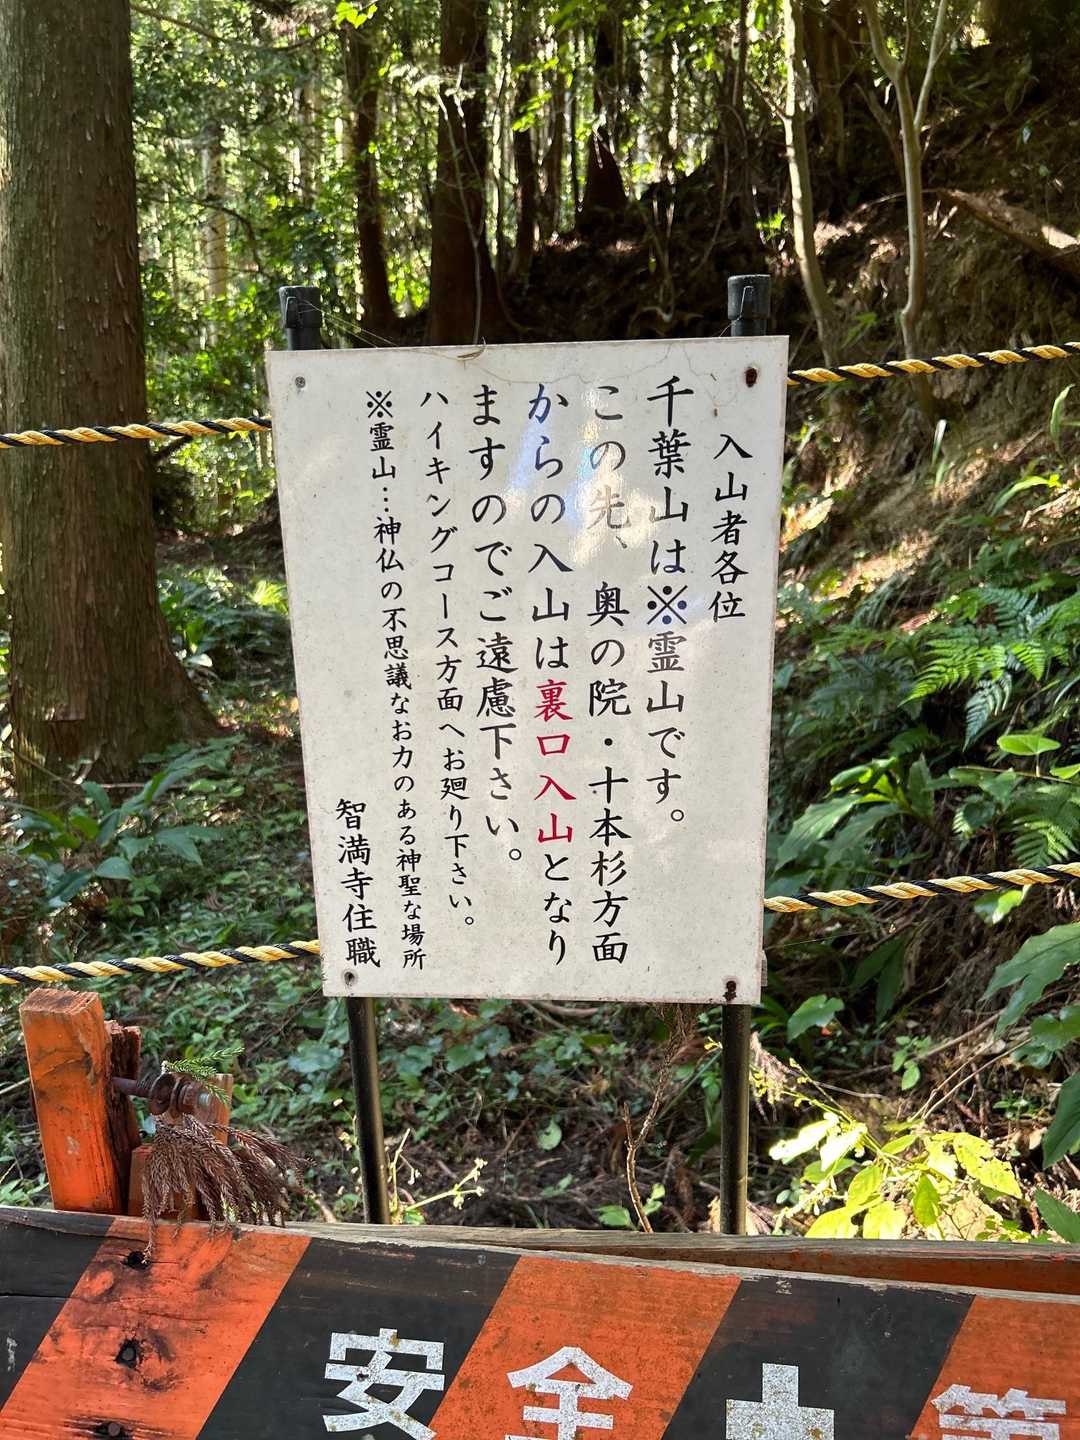 入山者各位
千葉山は※霊山です。
この先、奥の院・十本杉方面
からの入山は裏口入山となり
ますのでご遠慮下さい。
ハイキングコース方面へお廻り下さい。
※霊山…神仏の不思議なお力のある神聖な場所
智満寺住職
安全＋第